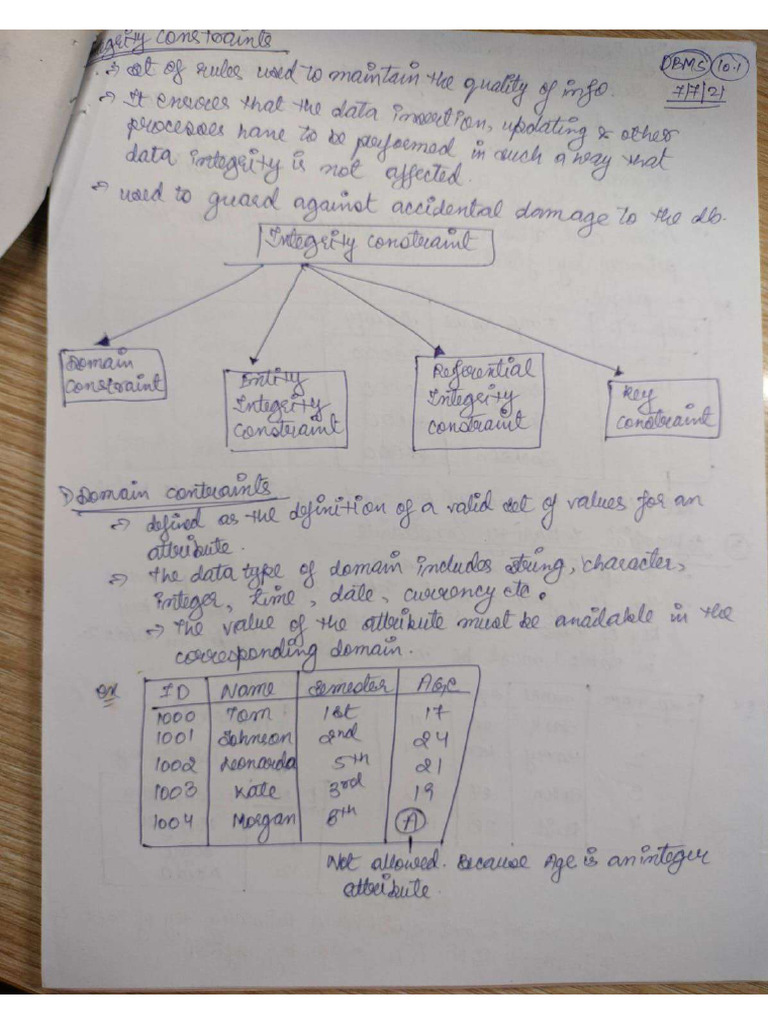 Integrity constraints
DBMS 10.1
7/7/21
→ Set of rules used to maintain the quality of info.
→ It ensures that the data insertion, updating & other
processes have to be performed in such a way that
data integrity is not affected.
→ used to guard against accidental damage to the db.
Integrity constraint
Domain
constraint
Entity
Integrity
constraint
Referential
Integrity
constraint
Key
constraint
1) Domain contraints
→ defined as the definition of a valid set of values for an
attribute.
→ The data type of domain includes string, character,
integer, time, date, currency etc.
→ The value of the attribute must be available in the
corresponding domain.
ex ID Name Semester AGE
1000 Tom 1st 17
1001 Johnson 2nd 24
1002 Leonarda 5th 21
1003 Kate 3rd 19
1004 Morgan 8th A
Not allowed. Because Age is an integer
attribute.